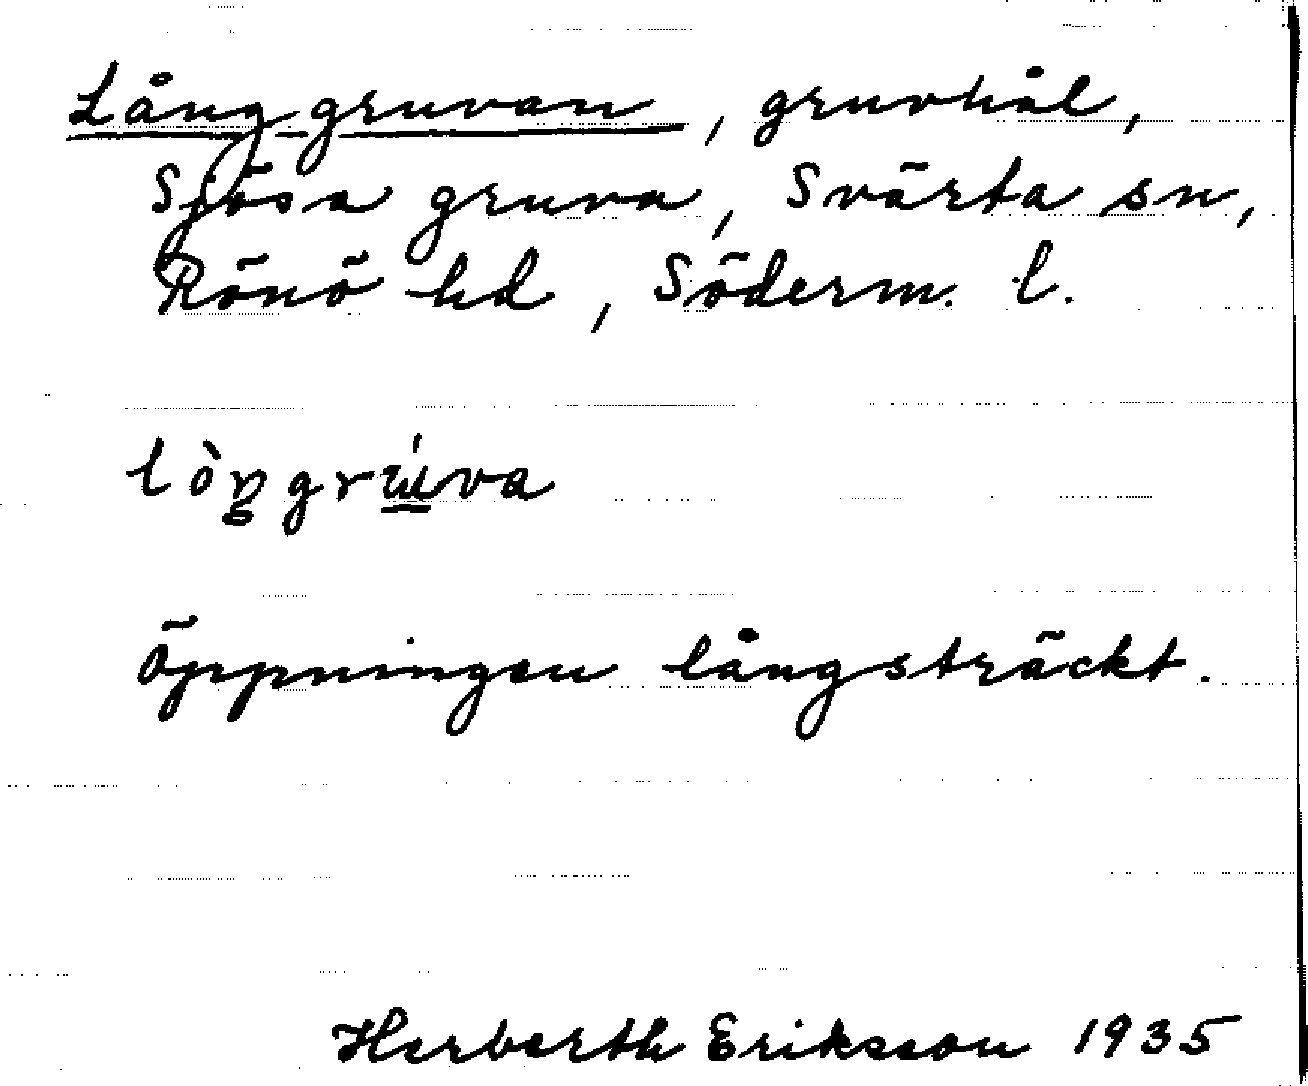 Långgruvan, gruvhål,
Sjösa gruva, Svärta sn,
Rönö hd, Söderm. l.
lòŋgrúva
Öppningen långsträckt.
Herberth Eriksson 1935